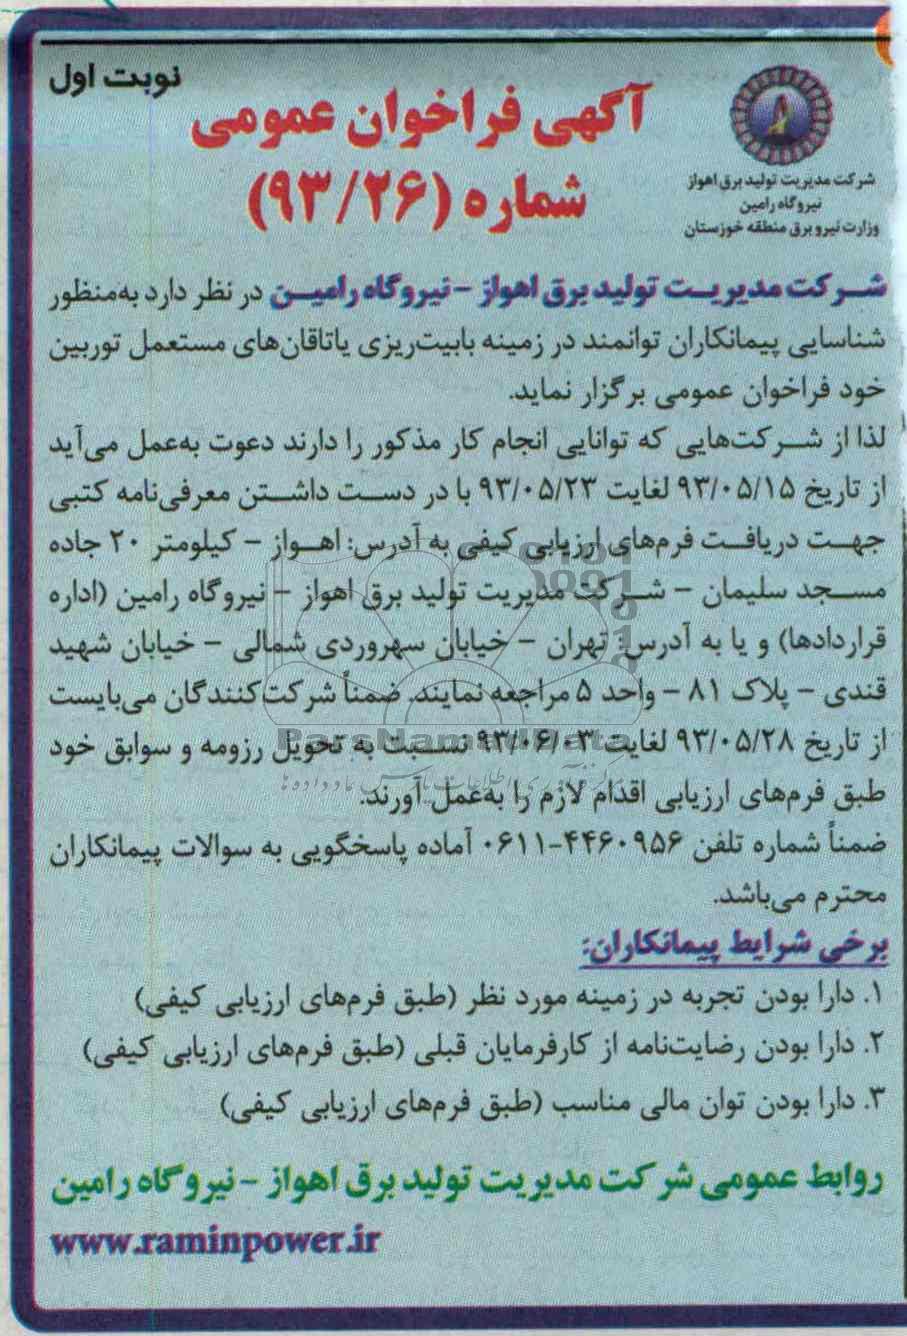 نوبت اول
آگهی فراخوان عمومی
شماره (۹۳/۲۶)
شرکت مدیریت تولید برق اهواز
نیروگاه رامین
وزارت نیرو برق منطقه خوزستان
شرکت مدیریت تولید برق اهواز - نیروگاه رامین در نظر دارد به‌منظور
شناسایی پیمانکاران توانمند در زمینه بابیت‌ریزی یاتاقان‌های مستعمل توربین
خود فراخوان عمومی برگزار نماید.
لذا از شرکت‌هایی که توانایی انجام کار مذکور را دارند دعوت به‌عمل می‌آید
از تاریخ ۹۳/۰۵/۱۵ لغایت ۹۳/۰۵/۲۳ با در دست داشتن معرفی‌نامه کتبی
جهت دریافت فرم‌های ارزیابی کیفی به آدرس: اهواز - کیلومتر ۲۰ جاده
مسجد سلیمان - شرکت مدیریت تولید برق اهواز - نیروگاه رامین (اداره
قراردادها) و یا به آدرس: تهران - خیابان سهروردی شمالی - خیابان شهید
قندی - پلاک ۸۱ - واحد ۵ مراجعه نمایند. ضمناً شرکت‌کنندگان می‌بایست
از تاریخ ۹۳/۰۵/۲۸ لغایت ۹۳/۰۶/۰۳ نسبت به تحویل رزومه و سوابق خود
ParsNamadData
طبق فرم‌های ارزیابی اقدام لازم را به‌عمل آورند.
ضمناً شماره تلفن ۴۴۶۰۹۵۶-۰۶۱۱ آماده پاسخگویی به سوالات پیمانکاران
محترم می‌باشد.
برخی شرایط پیمانکاران:
۱. دارا بودن تجربه در زمینه مورد نظر (طبق فرم‌های ارزیابی کیفی)
۲. دارا بودن رضایت‌نامه از کارفرمایان قبلی (طبق فرم‌های ارزیابی کیفی)
۳. دارا بودن توان مالی مناسب (طبق فرم‌های ارزیابی کیفی)
روابط عمومی شرکت مدیریت تولید برق اهواز - نیروگاه رامین
www.raminpower.ir